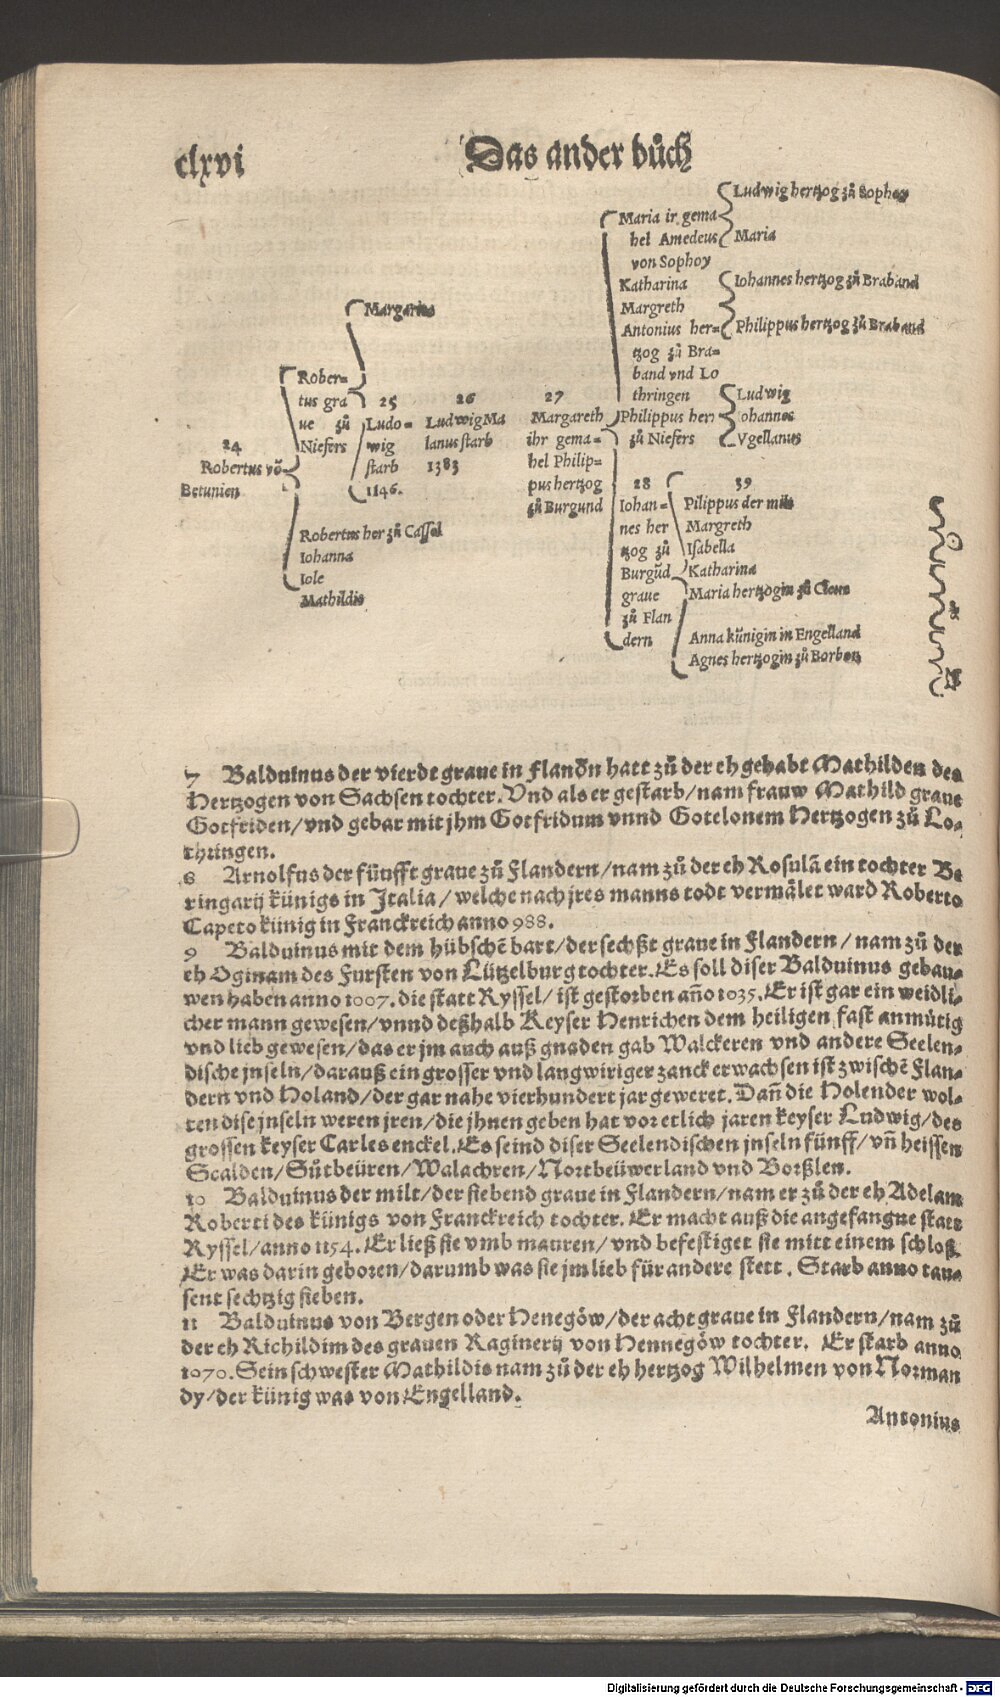 clxvi
Das ander bůch
Margarita
24
Robertus võ
Betunien
Rober=
tus gra
ue zů
Niefers
Robertus her zů Cassel
Iohanna
Iole
Mathildis
25
Ludo=
wig
starb
1146.
26
Ludwig Ma
lanus starb
1383
27
Margareth
ihr gema=
hel Philip=
pus hertzog
zů Burgund
Maria ir gema
hel Amedeus
von Sophoy
Katharina
Margreth
Antonius her=
tzog zů Bra=
band vnd Lo
thringen
Philippus herr
zů Niefers
28
Iohan=
nes her
tzog zů
Burgũd
graue
zů Flan
dern
Ludwig hertzog zů Sophoy
Maria
Iohannes hertzog zů Braband
Philippus hertzog zů Braband
Ludwig
Iohannes
Vgellanus
39
Pilippus der milt
Margreth
Isabella
Katharina
Maria hertzogin zů Cleue
Anna künigin in Engelland
Agnes hertzogin zů Borbon
7 Balduinus der vierdt graue in Flandn hatt zů der eh gehabt Mathilden des
Hertzogen von Sachsen tochter. Vnd als er gestarb/ nam frauw Mathild graue
Gotfriden/ vnd gebar mit jhm Gotfridum vnnd Gotelonem Hertzogen zů Lo=
thringen.
8 Arnolfus der fünfft graue zů Flandern/ nam zů der eh Rosulã ein tochter Be
ringarij künigs in Italia/ welche nach jres manns todt vermälet ward Roberto
Capeto künig in Franckreich anno 988.
9 Balduinus mit dem hübschẽ bart/ der sechßt graue in Flandern/ nam zů der
eh Oginam des Fursten von Lützelburg tochter. Es soll diser Balduinus gebau=
wen haben anno 1007. die statt Ryssel/ ist gestorben año 1035. Er ist gar ein weidli=
cher mann gewesen/ vnnd deßhalb Keyser Henrichen dem heiligen fast anmütig
vnd lieb gewesen/ das er jm auch auß gnaden gab Walckeren vnd andere Seelen=
dische jnseln/ darauß ein grosser vnd langwiriger zanck erwachsen ist zwischẽ Flan=
dern vnd Holand/ der gar nahe vierhundert jar geweret. Dañ die Holender wol=
ten dise jnseln weren jren/ die jhnen geben hat vor etlich jaren keyser Ludwig/ des
grossen keyser Carles enckel. Es seind diser Seelendischen jnseln fünff/ vñ heissen
Scalden/ Sůtbeüren/ Walachren/ Nortbeüwerland vnd Borßlen.
10 Balduinus der milt/ der siebend graue in Flandern/ nam er zů der eh Adelam
Roberti des künigs von Franckreich tochter. Er macht auß die angefangne statt
Ryssel/ anno 1154. Er ließ sie vmb mauren/ vnd befestiget sie mitt einem schloß.
Er was darin geboren/ darumb was sie jm lieb für andere stett. Starb anno tau=
sent sechtzig sieben.
11 Balduinus von Bergen oder Henegöw/ der acht graue in Flandern/ nam zů
der eh Richildim des grauen Raginerij von Hennegöw tochter. Er starb anno
1070. Sein schwester Mathildis nam zů der eh hertzog Wilhelmen von Norman
dy/ der künig was von Engelland.
Antonius
Digitalisierung gefördert durch die Deutsche Forschungsgemeinschaft - DFG